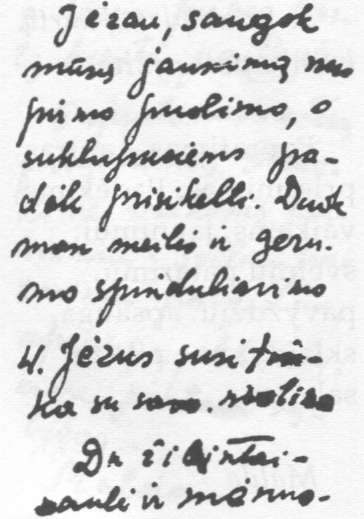 Jėzau, saugok
mūsų jaunimą nuo
pirmo puolimo, o
suklupusiems pa-
dėk prisikelti. Duok
man meilės ir geru-
mo spinduliavimo
4. Jėzus susitin-
ka su savo motina
ir mėnuo-